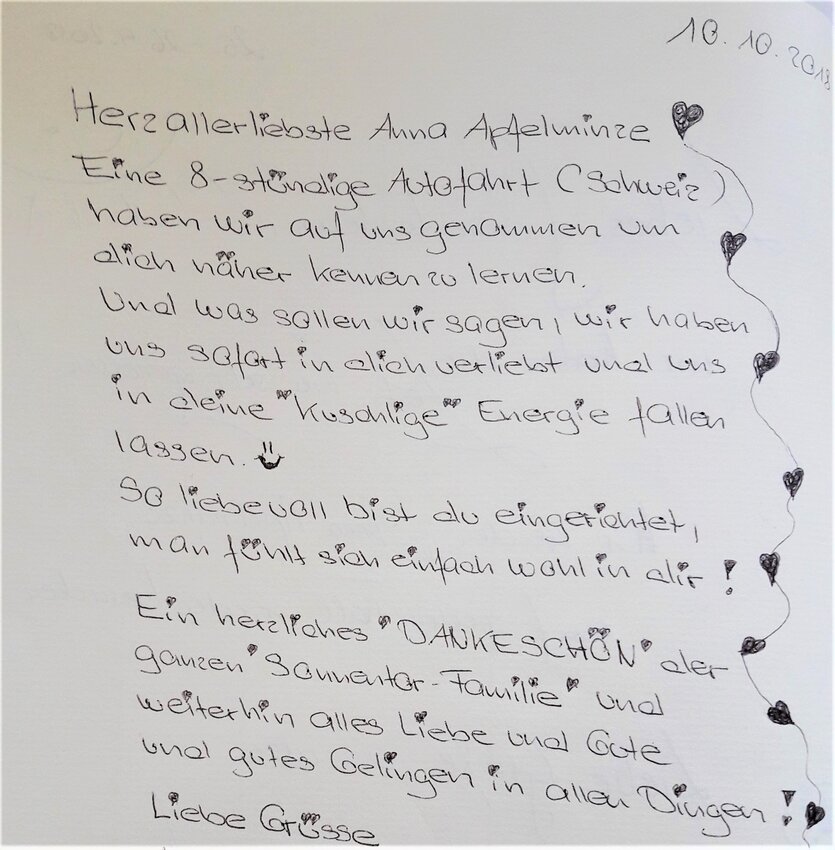 10.10.2018
Herzallerliebste Anna Apfelminze
Eine 8-stündige Autofahrt (Schweiz)
haben wir auf uns genommen um
dich näher kennen zu lernen.
Und was sollen wir sagen, wir haben
uns sofort in dich verliebt und uns
in deine "Kuschlige" Energie fallen
lassen.
So liebevoll bist du eingerichtet,
man fühlt sich einfach wohl in dir!
Ein herzliches "DANKESCHÖN" der
ganzen "Sonnentor-Familie" und
weiterhin alles Liebe und Gute
und gutes Gelingen in allen Dingen!
Liebe Grüsse